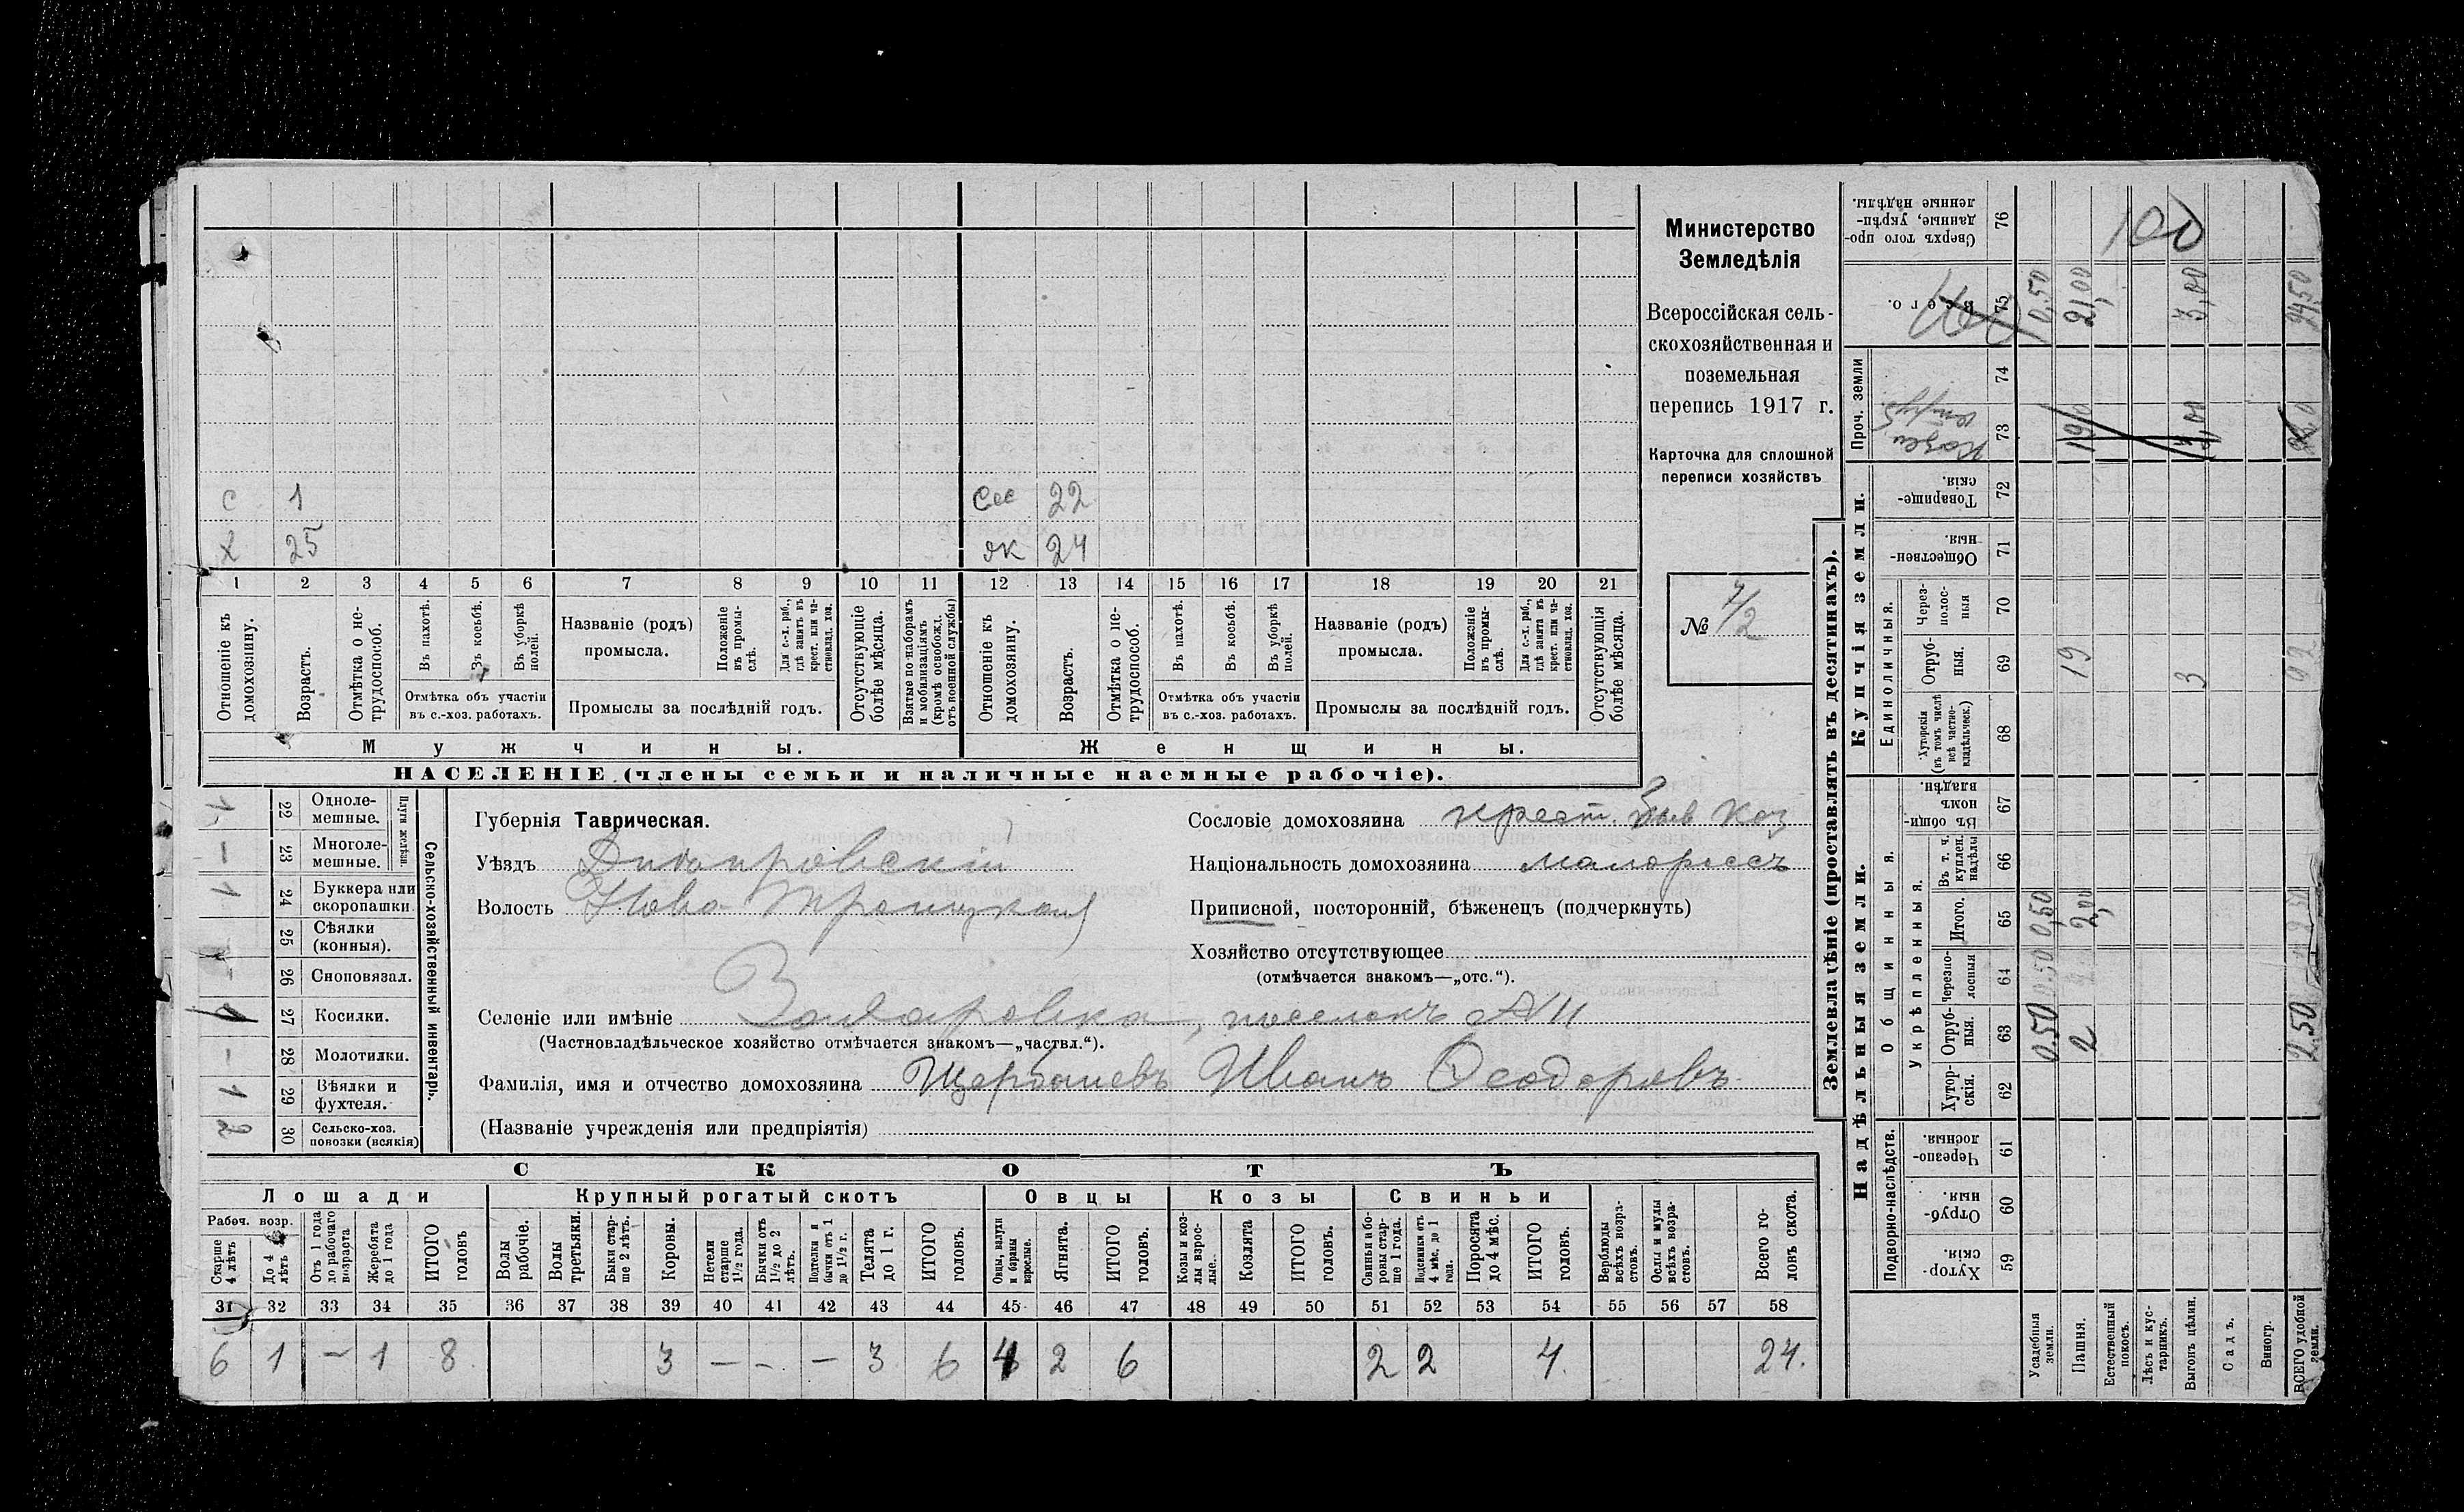 с 1 Сес 22
х 25 як 24
1 2 3 4 5 6 7 8 9 10 11 12 13 14 15 16 17 18 19 20 21
Отношеніе къ домохозяину.
Возрастъ.
Отмѣтка о не-
трудоспособ.
Въ пахотѣ.
Въ косьбѣ.
Въ уборкѣ полей.
Отмѣтка объ участіи
въ с.-хоз. работахъ.
Названіе (родъ)
промысла.
Положеніе въ промы-
слѣ.
Для с.-х. раб., гдѣ занятъ въ крест. или ча-
стновлад. хоз.
Промыслы за послѣдній годъ.
Отсутствующіе болѣе мѣсяца.
Взятые по наборамъ и мобилизаціямъ (кромѣ освобожд. отъ военной службы)
Отношеніе къ домохозяину.
Возрастъ.
Отмѣтка о не-
трудоспособ.
Въ пахотѣ.
Въ косьбѣ.
Въ уборкѣ полей.
Отмѣтка объ участіи
въ с.-хоз. работахъ.
Названіе (родъ)
промысла.
Положеніе въ промы-
слѣ.
Для с.-х. раб., гдѣ занята въ крест. или ча-
стновлад. хоз.
Промыслы за послѣдній годъ.
Отсутствующія болѣе мѣсяца.
Мужчины. Женщины.
НАСЕЛЕНІЕ (члены семьи и наличные наемные рабочіе).
Министерство
Земледѣлія
Всероссійская сель-
скохозяйственная и
поземельная
перепись 1917 г.
Карточка для сплошной
переписи хозяйствъ
№
Сельско-хозяйственный инвентарь.
Плуги желѣзн.
1 22 Одноле-
мешные.
— 23 Многоле-
мешные.
1 24 Буккера или
скоропашки.
25 Сѣялки
(конныя).
26 Сноповязал.
27 Косилки.
— 28 Молотилки.
1 29 Вѣялки и
фухтеля.
2 30 Сельско-хоз.
повозки (всякія)
Губернія Таврическая.
Уѣздъ Днѣпровскій
Волость Ново-Троицкая
Селеніе или имѣніе Захаровка, поселокъ №11
(Частновладѣльческое хозяйство отмѣчается знакомъ—„частвл.“).
Фамилія, имя и отчество домохозяина Щербаневъ Иванъ Ѳеодоровъ
(Названіе учрежденія или предпріятія)
Сословіе домохозяина крест. быв каз
Національность домохозяина малороссъ
Приписной, посторонній, бѣженецъ (подчеркнуть)
Хозяйство отсутствующее
(отмѣчается знакомъ—„отс.“).
СКОТЪ
Лошади Крупный рогатый скотъ Овцы Козы Свиньи
Рабоч. возр.
Старше 4 лѣтъ
До 4 лѣтъ
Отъ 1 года до рабочаго возраста
Жеребята до 1 года
ИТОГО головъ
Волы рабочіе.
Волы третьяки.
Быки стар-
ше 2 лѣтъ.
Коровы.
Нетели старше 1½ года.
Бычки отъ 1½ до 2 лѣтъ.
Подтелки и бычки отъ 1 до 1½ г.
Телята до 1 г.
ИТОГО головъ.
Овцы, валухи и бараны взрослые.
Ягнята.
ИТОГО головъ.
Козы и коз-
лы взрос-
лые.
Козлята
ИТОГО головъ.
Свиньи и бо-
ровы стар-
ше 1 года.
Подсвинки отъ 4 мѣс. до 1 года.
Поросята до 4 мѣс.
ИТОГО головъ.
Верблюды всѣхъ возра-
стовъ.
Ослы и мулы всѣхъ возра-
стовъ.
Всего го-
ловъ скота.
31 32 33 34 35 36 37 38 39 40 41 42 43 44 45 46 47 48 49 50 51 52 53 54 55 56 57 58
6 1 — 1 8 3 — — — 3 6 4 2 6 2 2 4. 24.
Землевладѣніе (проставлять въ десятинахъ).
Надѣльныя земли.
Купчія земли.
Проч. земли
Подворно-наслѣдств.
Общинныя.
Укрѣпленныя.
Единоличныя.
Хутор-
скія. 59
Отруб-
ныя. 60
Черезпо-
лосныя. 61
Хутор-
скія. 62
Отруб-
ныя. 63
Черезпо-
лосныя 64
Итого. 65
Въ т. ч. куплен. надѣлы 66
Въ общи-
номъ владѣн. 67
Хуторскія (въ томъ числѣ всѣ частно-
владѣльческ.) 68
Отруб-
ныя. 69
Через-
полос-
ныя 70
Обществен-
ныя. 71
Товарище-
скія. 72
73
74
Всего. 75
Сверхъ того про-
данные, укрѣп-
ленные надѣлы. 76
Усадебныя земли. 0.50 0.50 0,50 0,50
Пашня. 2 2,00 19 21,00
Естественный покосъ.
Лѣсъ и кус-
тарникъ.
Выгонъ цѣлин. 3 3,00
Садъ.
Виногр.
ВСЕГО удобной земли. 2.50 22 24,50
100